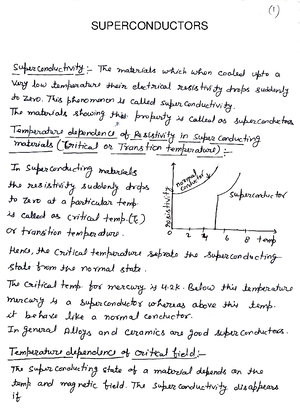 (1)
SUPERCONDUCTORS
Superconductivity :- The materials which when cooled upto a
very low temperature their electrical resistivity drops suddenly
to zero. This phenomenon is called superconductivity.
The materials showing this property is called as superconductors
Temperature dependence of Resistivity in Super conducting
materials (Critical or Transition temperature) :-
In Superconducting materials
the resistivity suddenly drops
to zero at a particular temp
is called as critical temp. (Tc)
or transition temperature.
resistivity
normal
conductor
Superconductor
0 2 4 6 8 temp
Hence, the critical temperature seprate the superconducting
state from the normal state.
The critical temp for mercury is 4.2K. Below this temperature
mercury is a superconductor whereas above this temp.
it behave like a normal conductor.
In general Alloys and ceramics are good superconductors.
Temperature dependence of critical field:-
The superconducting state of a material depends on the
temp and magnetic field. The superconductivity disappears
if